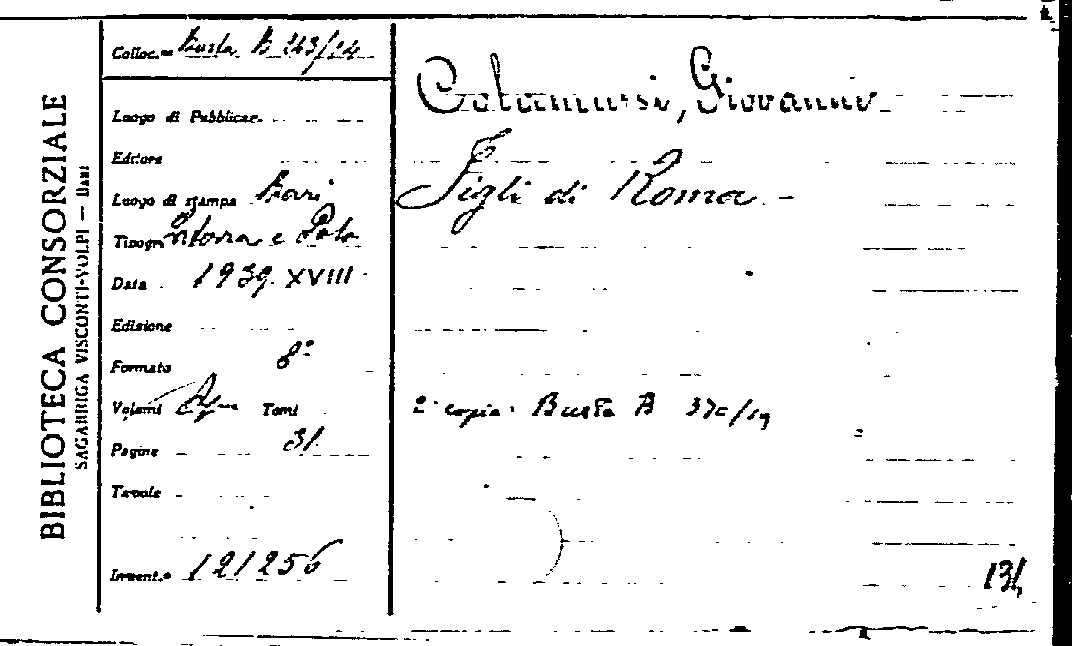 BIBLIOTECA CONSORZIALE
SAGARRIGA VISCONTI-VOLPI — BARI
Colloc.ne Busta B 243/14
Luogo di Pubblicaz.
Editore
Luogo di stampa Bari
Tipogr. e
Data 1939. XVIII
Edizione
Formato 8°
Volumi Tomi
Pagine 31
Tavole
Invent.o 121256
Colamussi, Giovanni
Figli di Roma
2ª copia: Busta B 370/19